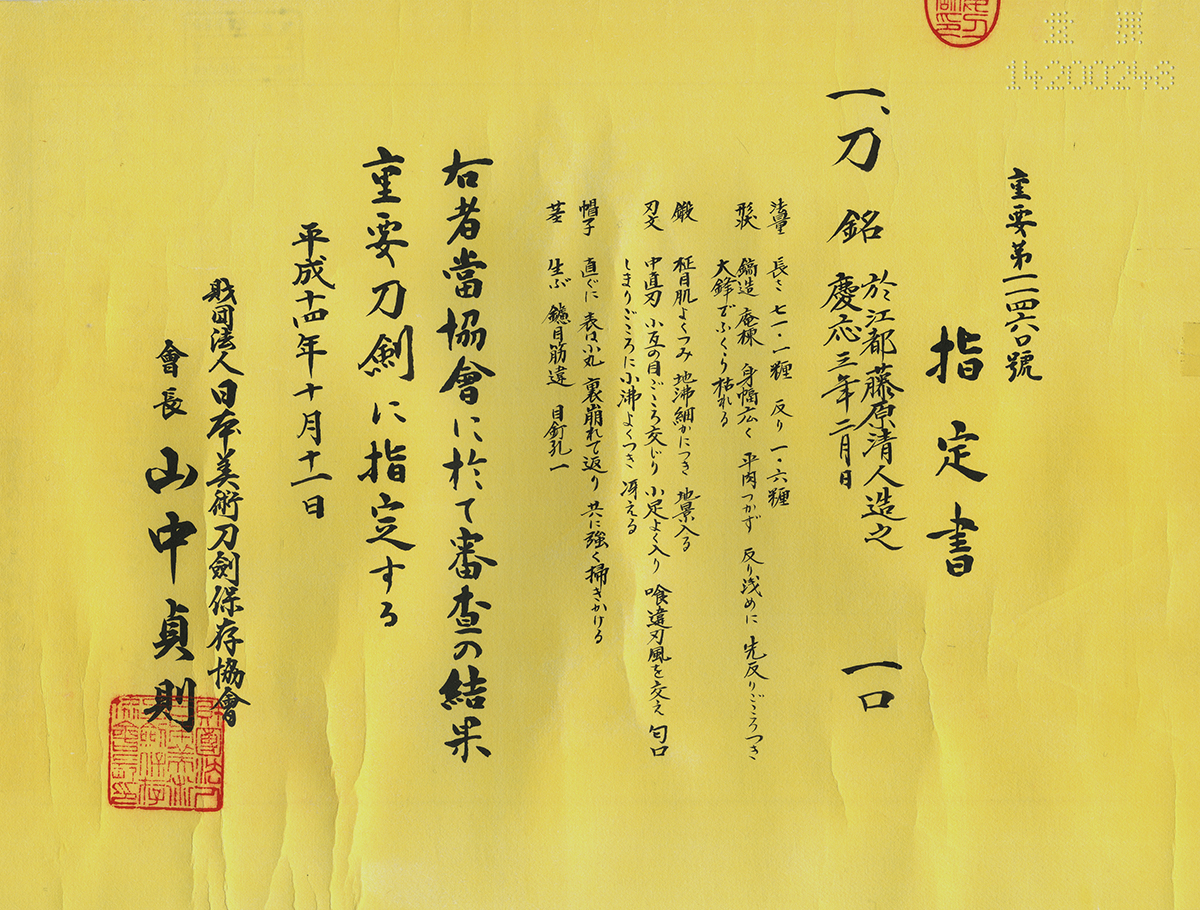 14200246
重要第一一四六〇號
指定書
一、刀 銘 於江都藤原清人造之
慶応三年二月日
一口
法量 長さ 七一・一糎 反り 一・六糎
形状 鎬造 庵棟 身幅広く 平肉つかず 反り浅めに 先反りごころつき
大鋒でふくら枯れる
鍛 柾目肌よくつみ 地沸細かにつき 地景入る
刃文 中直刃 小互の目ごころ交じり 小足よく入り 喰違刃風を交え 匂口
しまりごころに小沸よくつき 冴える
帽子 直ぐに 表は小丸 裏崩れて返り 共に強く掃きかける
茎 生ぶ 鑢目筋違 目釘孔一
右者當協會に於て審査の結果
重要刀劍に指定する
平成十四年十月十一日
財団法人日本美術刀劍保存協會
會長 山中貞則